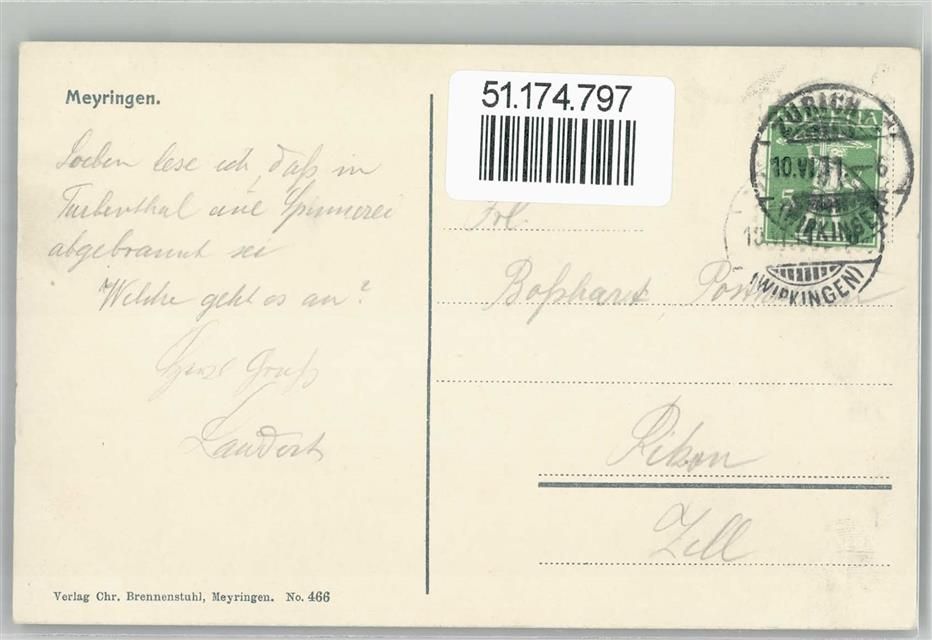 Meyringen.
Soeben lese ich, daß in
Turbenthal eine Spinnerei
abgebrannt sei
Welche geht es an?
Gruß
Verlag Chr. Brennenstuhl, Meyringen. No. 466
51.174.797
Frl.
Boßhart
Rikon
Zell
ZÜRICH
10.VI.11. 6
(WIPKINGEN)
(WIPKINGEN)
5